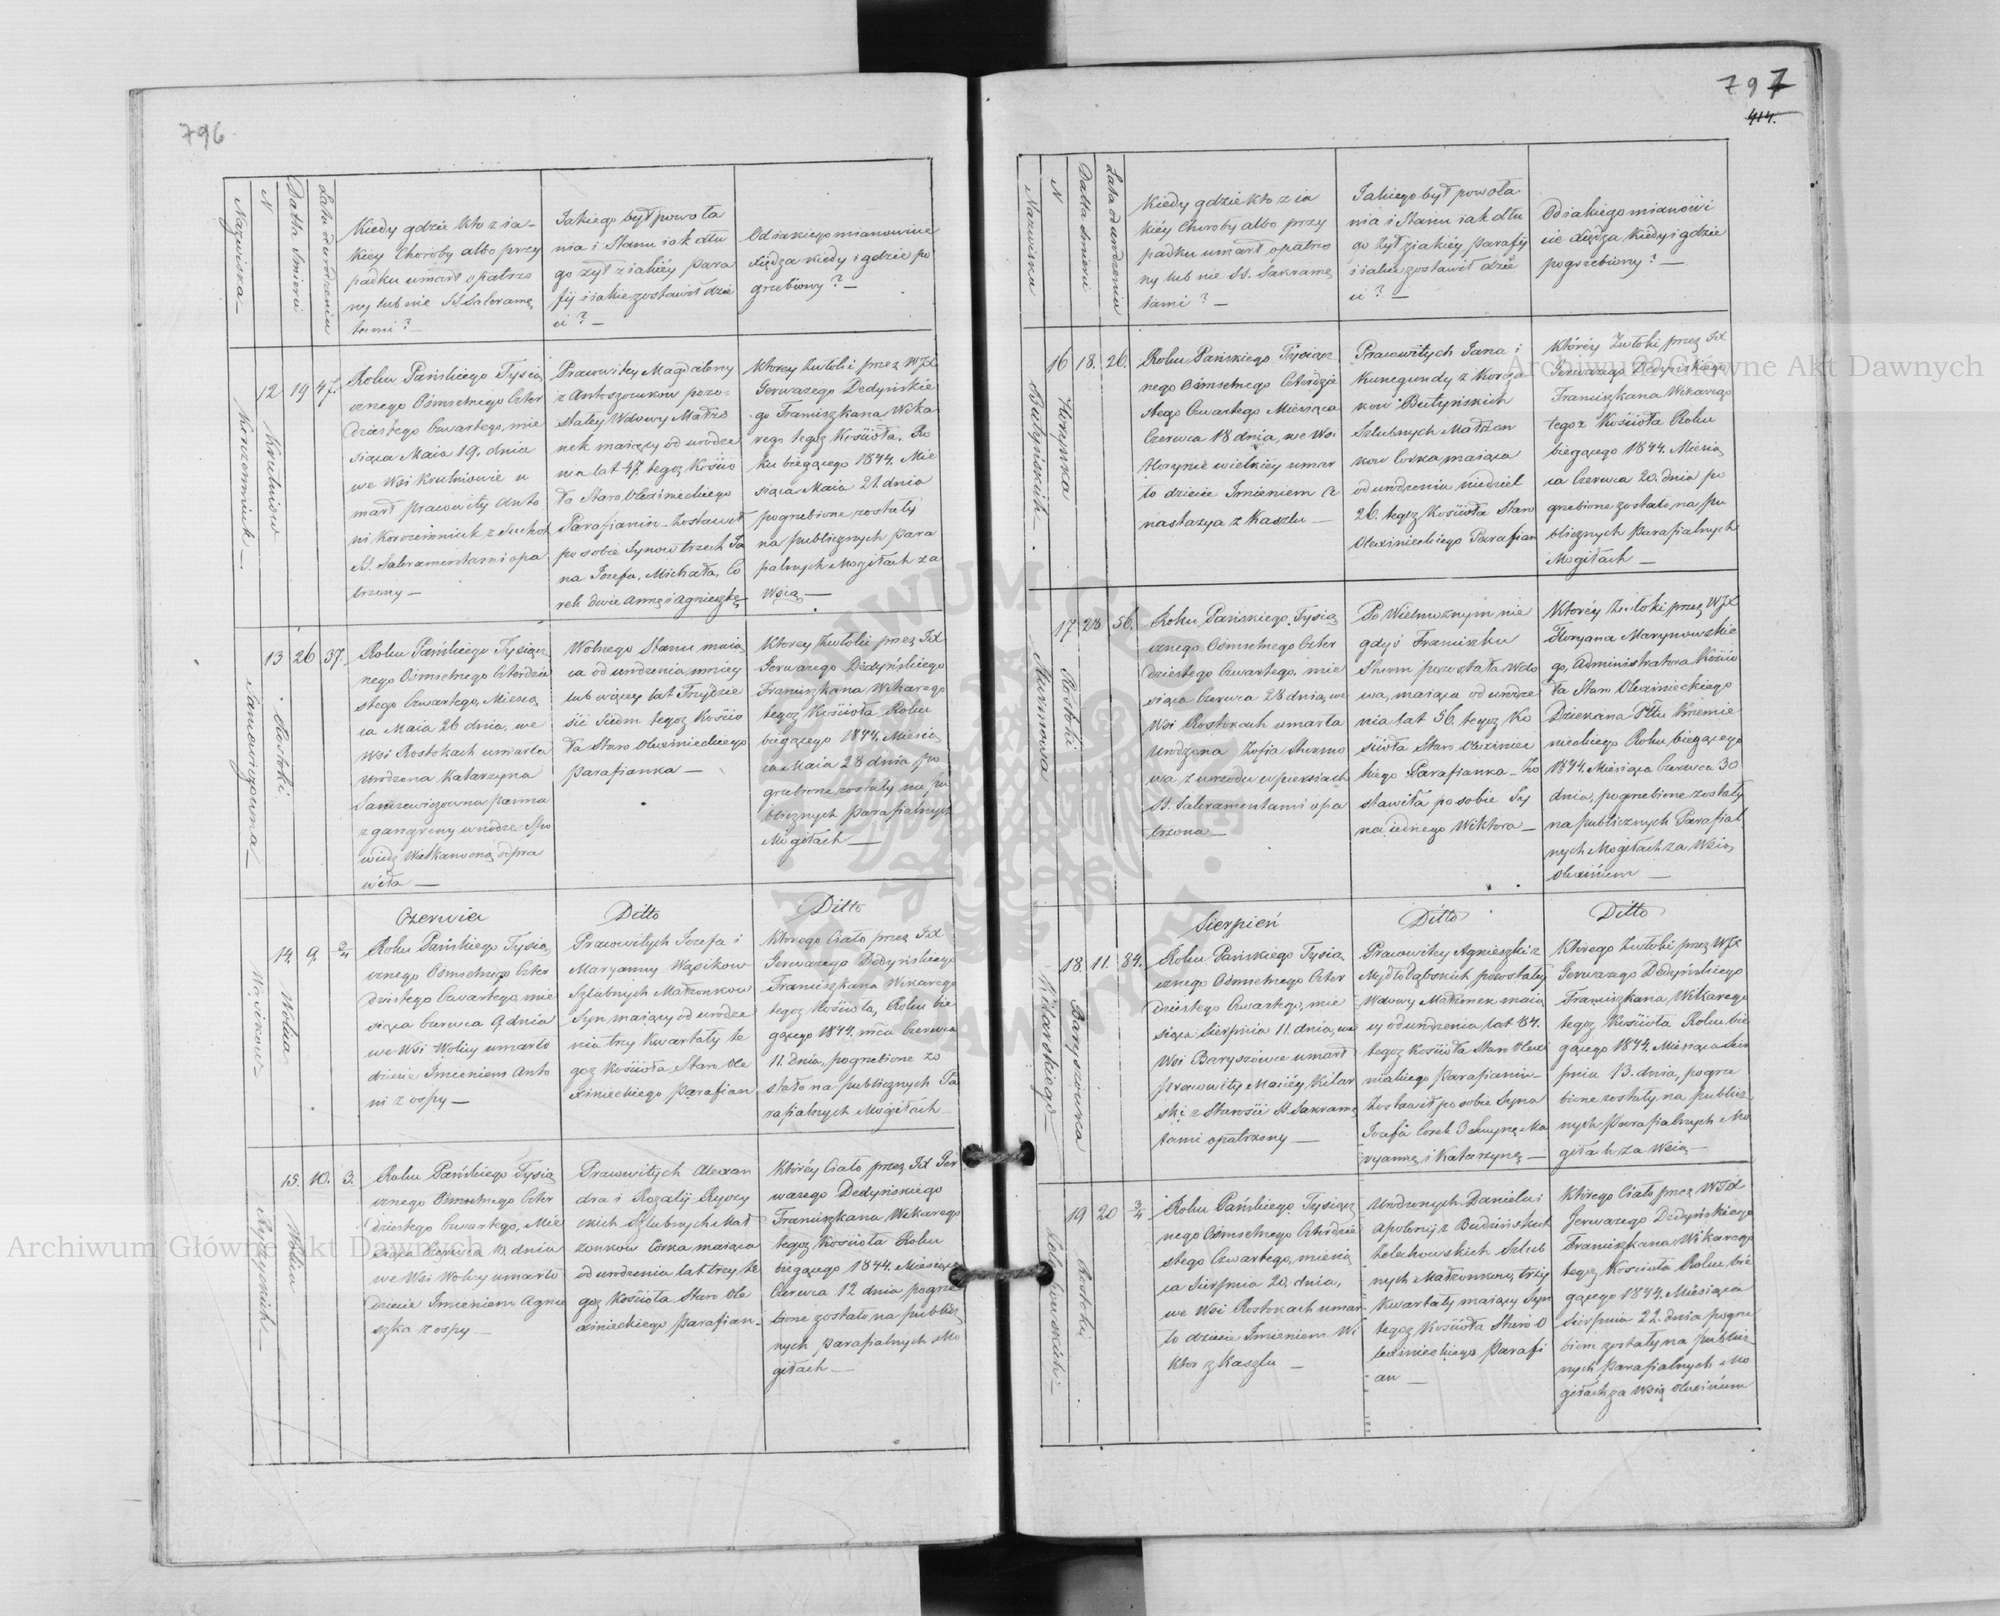 796
Nazwiska
N
Datta Smierci
Lata od urodzenia
Kiedy gdzie kto z ia-
kiey Choroby albo przy
padku umarł opatrzo
ny lub nie SS. Sakramę
tami? —
Jakiego był powoła
nia i Stanu iak dłu
go żył z iakiéy Para
fij i iakie zostawił dzie
ci? —
Od iakiego mianowicie
Xiędza kiedy i gdzie po
grzebiony? —
12
19
47.
Krutniow
Korzeniniuk —
Roku Pańskiego Tysią
cznego Ośmsetnego Czter
dziestego Czwartego, mie
siąca Maia 19. dnia
we Wsi Krutniowie u
marł prawowity Anto
ni Korzeniniuk z Suchot
SS. Sakramentami opa
trzony —
Prawowitey Magdaleny
z Antoszczukow pozo-
stałey Wdowy Małżo
nek maiący od urodze
nia lat 47. tegoż Kościo
ła Staro Olexinieckiego
Parafianin — Zostawił
po sobie Synow trzech Ja
na Jozefa, Michała, Co
rek dwie Annę i Agnieszkę —
Ktorey Zwłoki przez WJX
Gerwazego Dedyńskie
go Franciszkana Wika
rego tegoż Kościoła, Ro
ku biegącego 1844. Mie
siąca Maia 21. dnia
pogrzebione zostały
na publicznych para
fialnych Mogiłach za
Wsią —
13
26
37.
Rostoki
Sancewiczowna —
Roku Pańskiego Tysiącz
nego Ośmsetnego Czterdzie
stego Czwartego, Miesią
ca Maia 26 dnia, we
Wsi Rostokach umarła
urodzona Katarzyna
Sancewiczowna panna
z gangreny w nodze Spo
wiedź Wielkanocną odpra
wiła —
Wolnego Stanu maią
ca od urodzenia mniey
lub więcey lat Trzydzie
ści Siedm tegoż Kościo
ła Staro Olexinieckiego
parafianka —
Ktorey Zwłoki przez JX
Gerwazego Dedyńskiego
Franciszkana Wikarego
tegoż Kościoła, Roku
biegącego 1844. Miesią
ca Maia 28 dnia po
grzebione zostały na pu
blicznych parafialnych
Mogiłach —
14.
9.
3/4
Wolica
Czerwca
Ditto
Ditto
Roku Pańskiego Tysią
cznego Ośmsetnego Czter
dziestego Czwartego, mie
siąca Czerwca 9 dnia
we Wsi Wolicy umarło
dziecie Imieniem Anto
ni z ospy —
Prawowitych Jozefa i
Maryanny Wąsikow
Szlubnych Małżonkow
Syn, maiący od urodze
nia trzy kwartały te
goż Kościoła Staro Ole
xinieckiego parafian
Ktorego Ciało przez JX
Gerwazego Dedyńskiego
Franciszkana Wikarego
tegoż Kościoła, Roku bie
gącego 1844. mca Czerwca
11. dnia, pogrzebione zo
stało na publicznych Pa
rafialnych Mogiłach —
15.
10.
3.
Wolica
Ryżyckich —
Roku Pańskiego Tysią
cznego Ośmsetnego Czter
dziestego Czwartego, Mie
siąca Czerwca 10. dnia
we Wsi Wolicy umarło
dziecie Imieniem Agnie
szka z ospy —
Prawowitych Alexan
dra i Rozalij Ryży
ckich Szlubnych Mał
żonkow Corka maiąca
od urodzenia lat trzy te
goż Kościoła Staro Ole
xinieckiego parafian. —
Ktoréy Ciało przez JX Ger
wazego Dedyńskiego
Franciszkana Wikarego
tegoż Kościoła Roku
biegącego 1844. Miesiąca
Czerwca 12 dnia pogrze
bione zostało na publicz
nych parafialnych Mo
giłach —
797
414.
Nazwiska
N
Datta Smierci
Lata od urodzenia
Kiedy gdzie kto z ia
kiéy Choroby albo przy
padku umarł opatrzo
ny lub nie SS. Sakramę
tami? —
Jakiego był powoła
nia i Stanu iak dłu
go żył z iakiéy parafij
i iakie zostawił dzie
ci? —
Od iakiego mianowi
cie Xiędza, kiedy i gdzie
pogrzebiony? —
16
18.
26.
Horynka
Butyńskich —
Roku Pańskiego Tysiącz
nego Ośmsetnego Czterdzie
stego Czwartego Miesiąca
Czerwca 18 dnia, we Wsi
Horynce wielkiéy umar
ło dziecie Imieniem A
nastazya z Kaszlu —
Prawowitych Jana i
Kunegundy z
kow Butyńskich
Szlubnych Małżon
kow Corka, maiąca
od urodzenia niedziel
26. tegoż Kościoła Staro
Olexinieckiego Parafian
Ktoréy Zwłoki przez JX
Gerwazego Dedyńskiego
Franciszkana Wikarego
tegoż Kościoła Roku
biegącego 1844. Miesią
ca Czerwca 20. dnia po
grzebione zostało na pu
blicznych parafialnych
Mogiłach —
17
28
56.
Rostoki
Sturmowa
Roku Pańskiego Tysią
cznego Ośmsetnego Czter
dziestego Czwartego, mie
siąca Czerwca 28 dnia, we
Wsi Rostokach umarła
Urodzona Zofia Shurmo
wa, z wrzodu w piersiach
SS. Sakramentami opa
trzona —
Po Wielmożnym nie
gdyś Franciszku
Shurm pozostała Wdo
wa, maiąca od urodze
nia lat 56. tegoż Ko
ścioła Staro Olexiniec
kiego Parafianka — Zo
stawiła po sobie Sy
na iednego Wiktora —
Ktoréy Zwłoki przez WJX
Floryana Marynowskie
go, Administratora Kościo
ła Staro Olexinieckiego
Dziekana Pttu Krzemie
nieckiego Roku biegącego
1844. Miesiąca Czerwca 30
dnia, pogrzebione zostały
na publicznych Parafial
nych Mogiłach za Wsią,
Olexińcem —
18.
11.
84.
Baryszowka
Kilarskiego —
Sierpień
Ditto
Ditto
Roku Pańskiego Tysią
cznego Ośmsetnego Czter
dziestego Czwartego, mie
siąca Sierpnia 11. dnia, we
Wsi Baryszowce umarł
prawowity Maciéy Kilar
ski z Starości SS. Sakramę
tami opatrzony —
Prawowitey Agnieszki z
pozostałey
Wdowy Małżonek maią
cy od urodzenia lat 84.
tegoż Kościoła Staro Olexi
nieckiego parafianin —
Zostawił po sobie Syna
Jozefa Corek 3 Maryannę Ma
ryannę i Katarzynę —
Ktorego Zwłoki przez WJX
Gerwazego Dedyńskiego
Franciszkana, Wikarego
tegoż Kościoła Roku bie
gącego 1844. Miesiąca Sier
pnia 13. dnia, pogrze
bione zostały na publicz
nych parafialnych Mo
giłach za Wsią —
19
20
3/4
Rostoki
Roku Pańskiego Tysiącz
nego Ośmsetnego Czterdzie
stego Czwartego, miesią
ca Sierpnia 20. dnia,
we Wsi Rostokach umar
ło dziecie Imieniem Wi
ktor z Kaszlu —
Urodzonych Daniela i
Apolonij z Budzińskich
Żelechowskich Szlub
nych Małżonkow, trzy
kwartały maiący Syn
tegoż Kościoła Staro O
lexinieckiego Parafi
an —
Ktorego Ciało przez WJX
Gerwazego Dedyńskiego
Franciszkana Wikarego
tegoż Kościoła Roku bie
gącego 1844. Miesiąca
Sierpnia 22. dnia pogrze
bione zostały na publicz
nych parafialnych Mo
giłach za Wsią Olexińcem
Archiwum Główne Akt Dawnych
Archiwum Główne Akt Dawnych